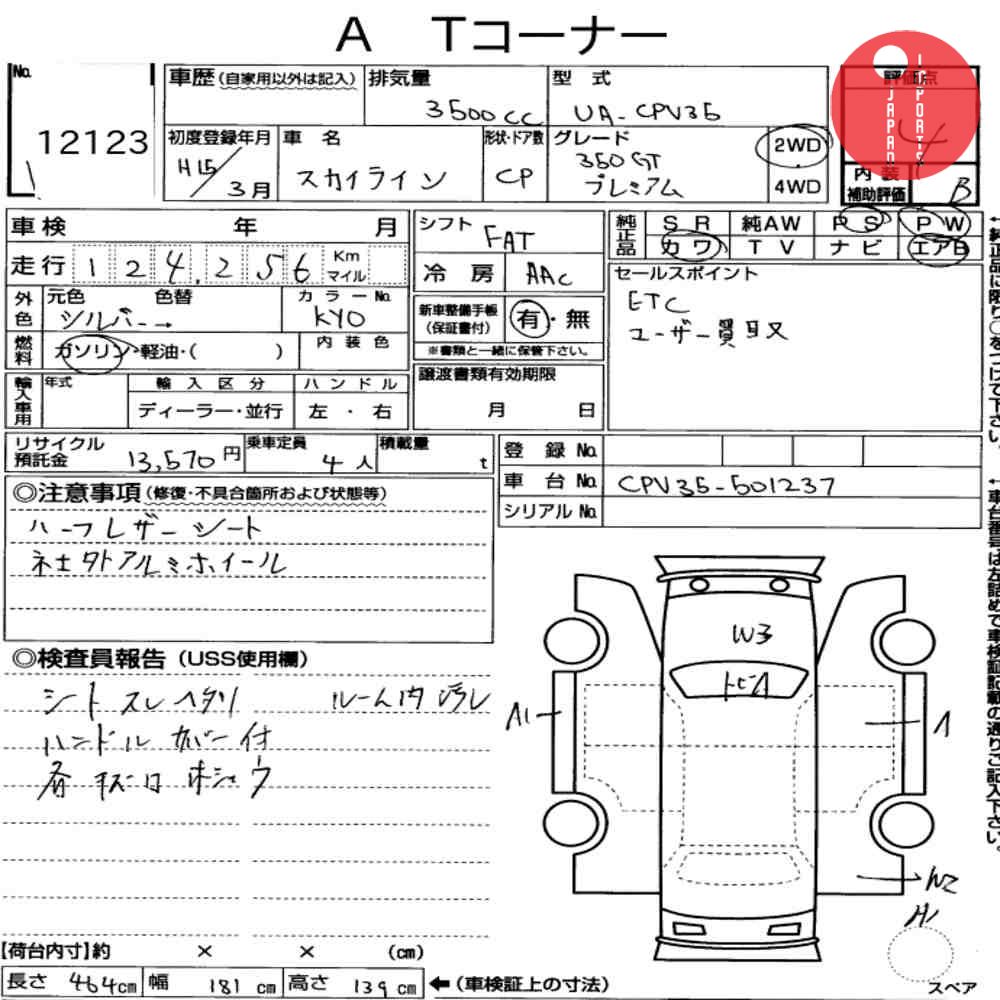 A Tコーナー
No. 12123
車歴 (自家用以外は記入)
排気量 3500cc
型式 UA-CPV35
評価点 4
JAPAN IMPORTS
初度登録年月 H15/3月
車名 スカイライン
形状・ドア数 CP
グレード 350GT プレミアム
2WD
4WD
内装補助評価 B
車検 年 月
シフト FAT
純正品 SR 純AW PS PW
カワ TV ナビ エアB
走行 124,256 Km マイル
冷房 AAC
セールスポイント
ETC
ユーザー買取
外色 元色 色替 カラーNo.
シルバー→ KYO
新車整備手帳 (保証書付) 有・無
※書類と一緒に保管下さい。
燃料 ガソリン・軽油・( ) 内装色
譲渡書類有効期限
月 日
輸入車用 年式 輸入区分 ハンドル
ディーラー・並行 左・右
リサイクル預託金 13,570円
乗車定員 4人
積載量 t
登録No.
車台No. CPV35-501237
シリアルNo.
◎注意事項 (修復・不具合箇所および状態等)
ハーフレザーシート
社外アルミホイール
◎検査員報告 (USS使用欄)
シートスレヘタリ ルーム内汚レ
ハンドルカバー付
W3
A1
A
W2
A1
スペア
【荷台内寸】約 × × (cm)
長さ 464cm 幅 181cm 高さ 139cm
←(車検証上の寸法)
←純正品に限り○をつけて下さい。
←車台番号は左詰めで車検証記載の通りご記入下さい。